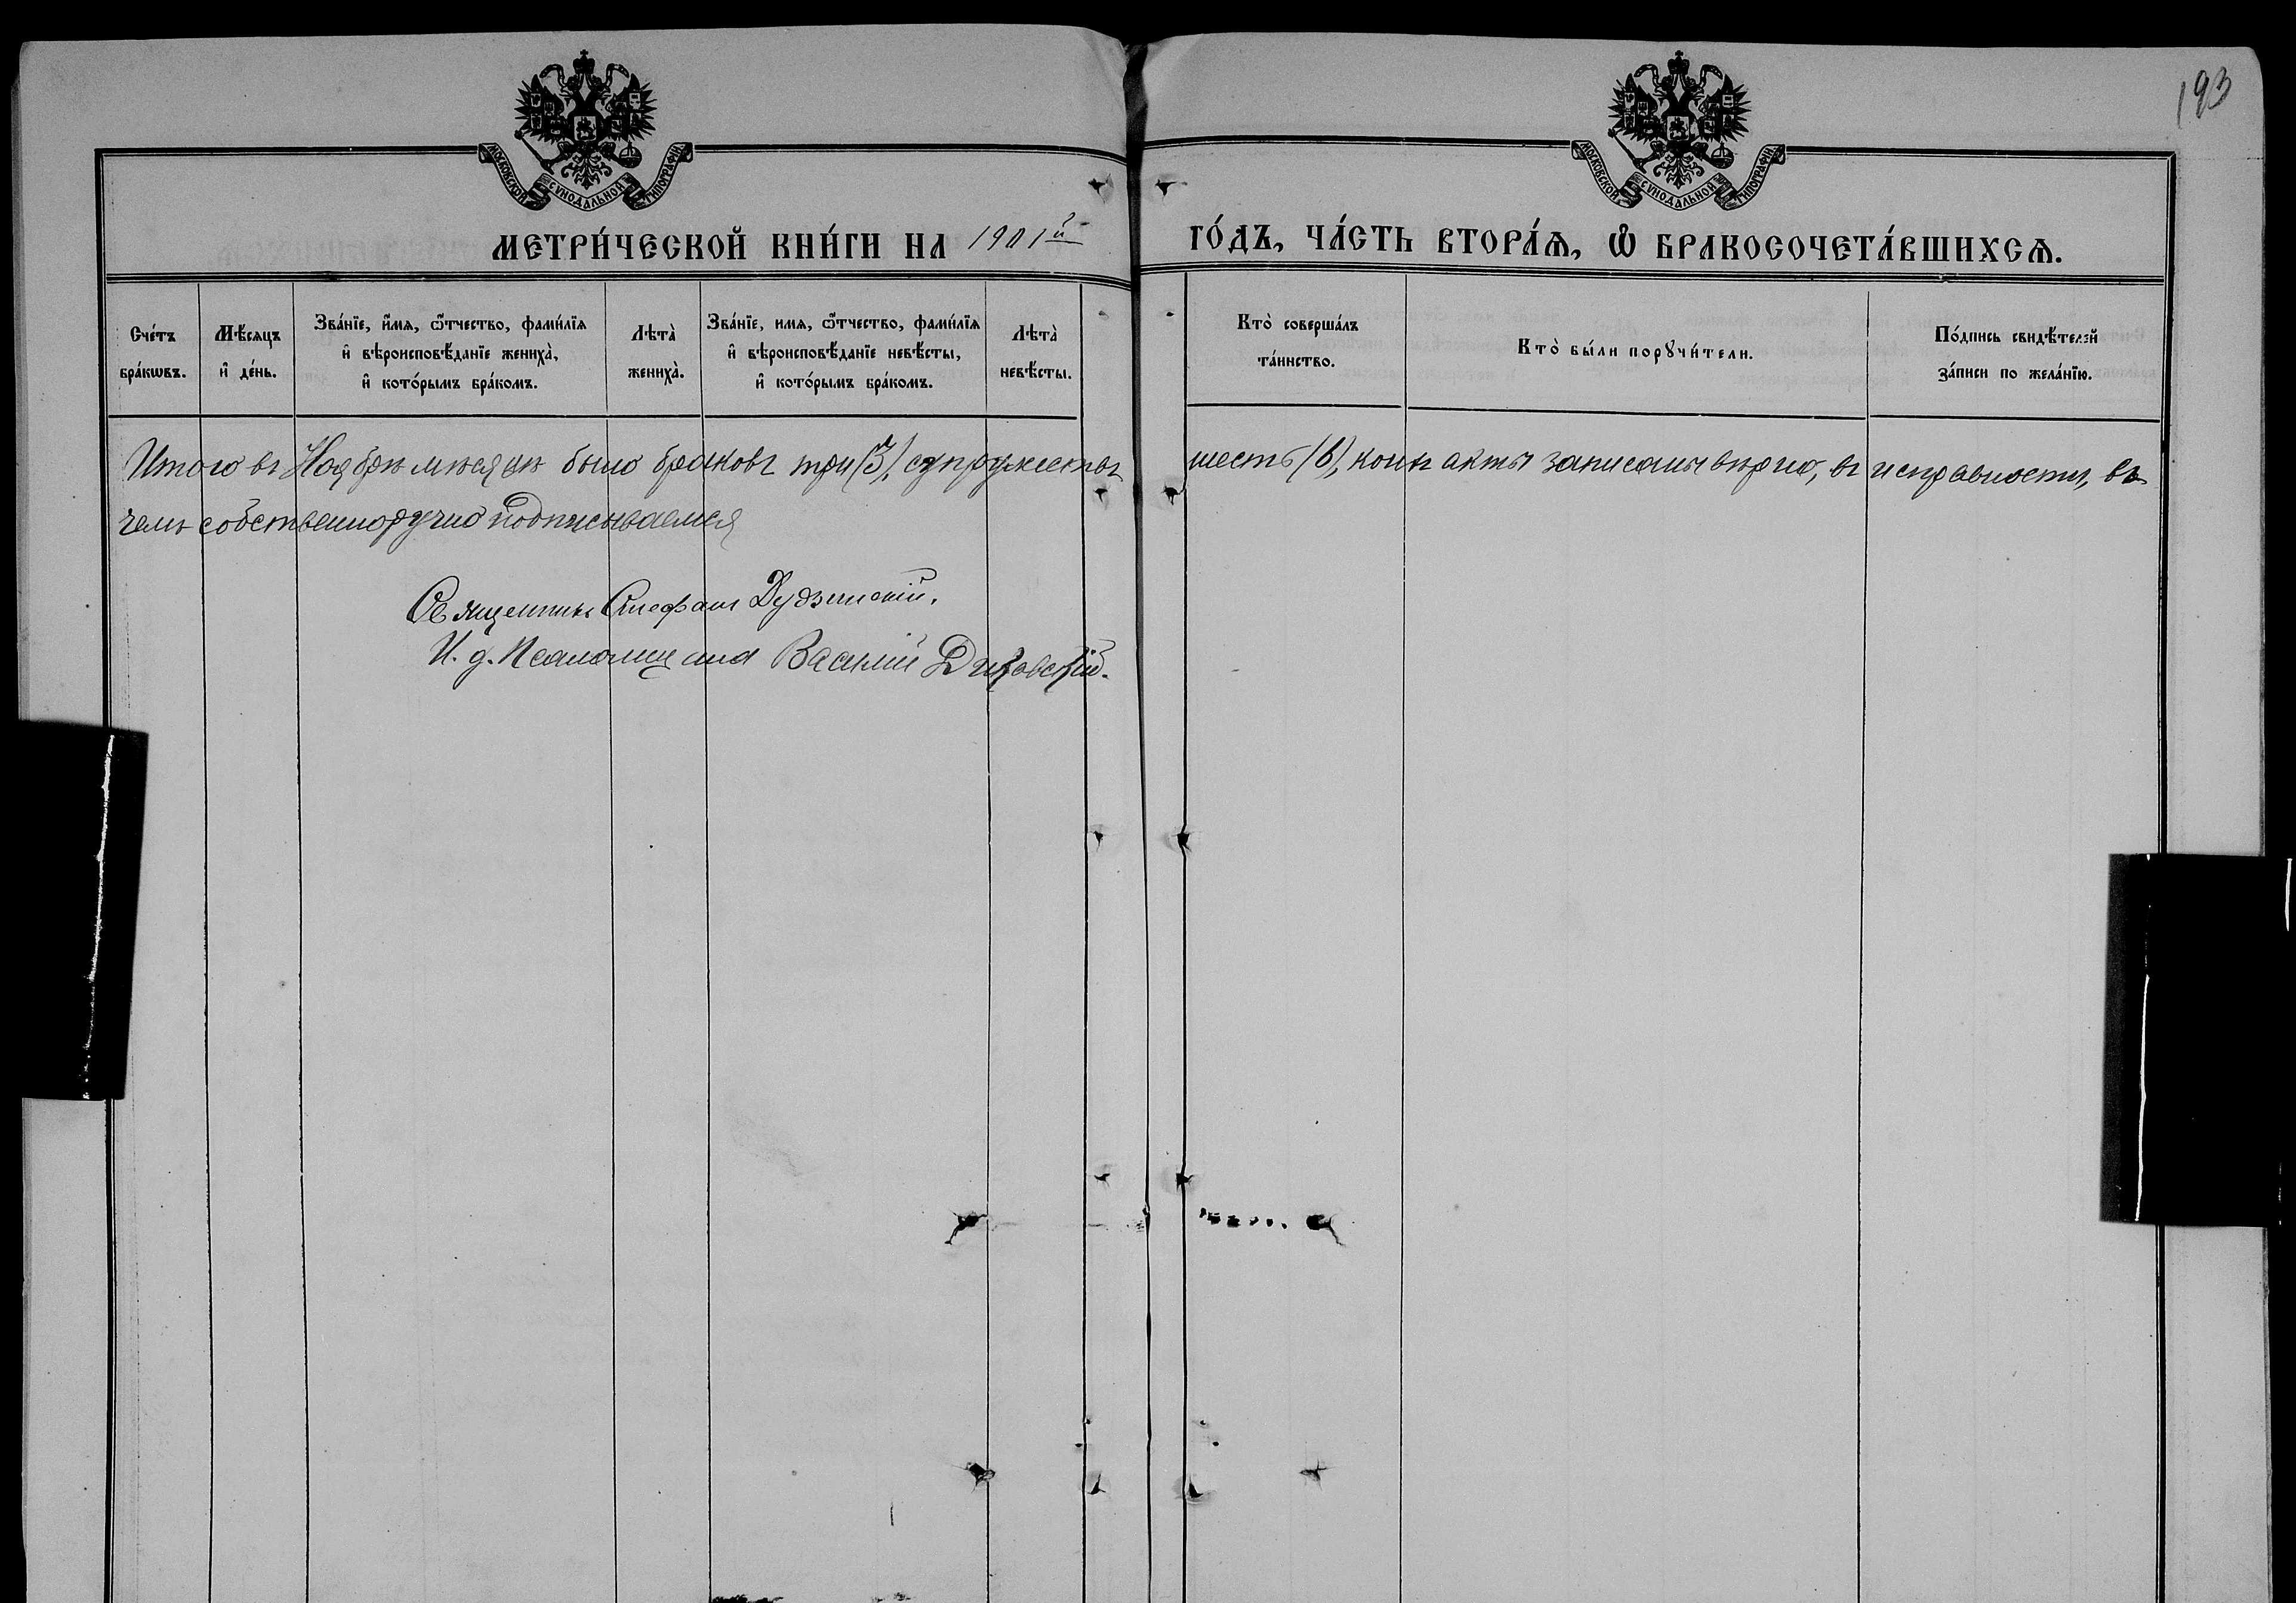 193
МОСКОВСКОЙ СѴНОДАЛЬНОЙ ТИПОГРАФІИ
МОСКОВСКОЙ СѴНОДАЛЬНОЙ ТИПОГРАФІИ
МЕТРИ́ЧЕСКОЙ КНИ́ГИ НА 1901й ГО́ДЪ, ЧА́СТЬ ВТОРА́Ѧ, Ѽ БРАКОСОЧЕТА́ВШИХСѦ.
Сче́тъ бра́кѡвъ.
Мѣ́сяцъ и҆ де́нь.
Зва́нїе, и҆́мѧ, ѻ҆́тчество, фами́лїѧ и҆ вѣроисповѣ́данїе жениха̀, и҆ кото́рымъ бра́комъ.
Лѣта̀ жениха̀.
Зва́нїе, имѧ, ѻ҆́тчество, фами́лїѧ и҆ вѣроисповѣ́данїе невѣ́сты, и҆ кото́рымъ бра́комъ.
Лѣта̀ невѣ́сты.
Кто̀ соверша́лъ та́инство.
Кто̀ бы́ли порꙋчи́тели.
По́дпись свидѣ́телей за́писи по жела́нїю.
Итого въ Ноябрѣ мѣсяцѣ было браковъ три (3), супружествъ шесть (6), коихъ акты записаны вѣрно, въ исправности, въ
чемъ собственноручно подписываемся
Священникъ Стефанъ Дудзинскій.
И. д. Псаломщика Василій Диковскій.